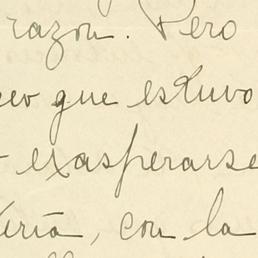 razon. Pero
que estuvo
exasperarse
, con la